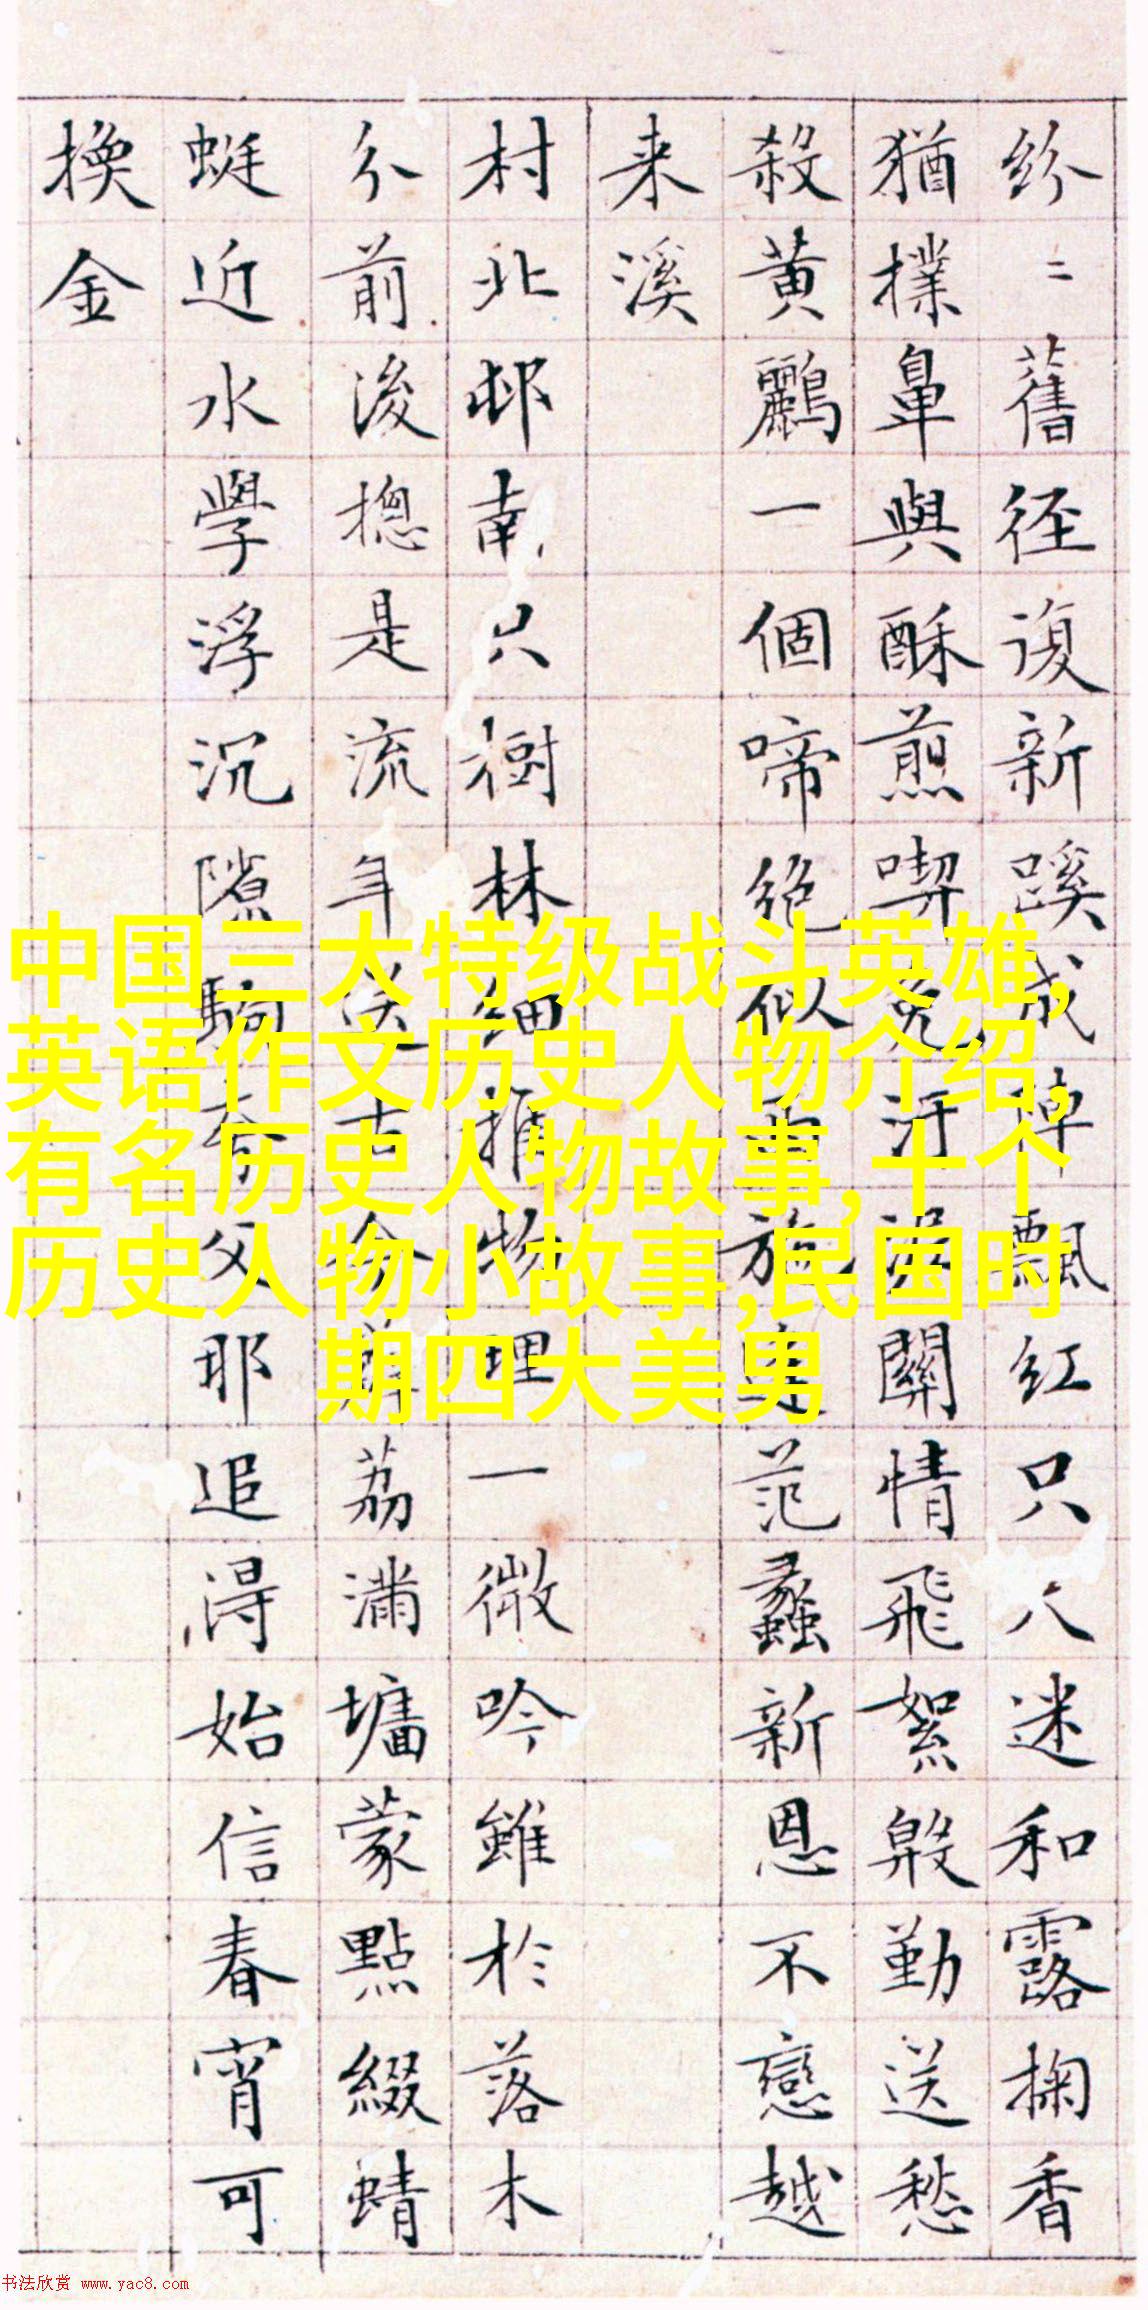 紛〻舊徑復新蹊成陣飄紅只迷和露掬香
猶撲鼻與酥煎喫免汙關情飛絮殷勤送愁
殺黃鸝一個啼絶似施范蠡新恩不戀越
来溪
村北邨南只樹林細推物理一微吟雖於落木
分前後摠是流年古今荔滿墉蒙點綴蜻
蜓近水學浮沉隙駒夸父耶追得始信春宵可
換金
中国三大特级战斗英雄,
英语作文历史人物介绍,
有名历史人物故事,十个
历史人物小故事,民国时
期四大美男
书法欣赏 www.yac8.com